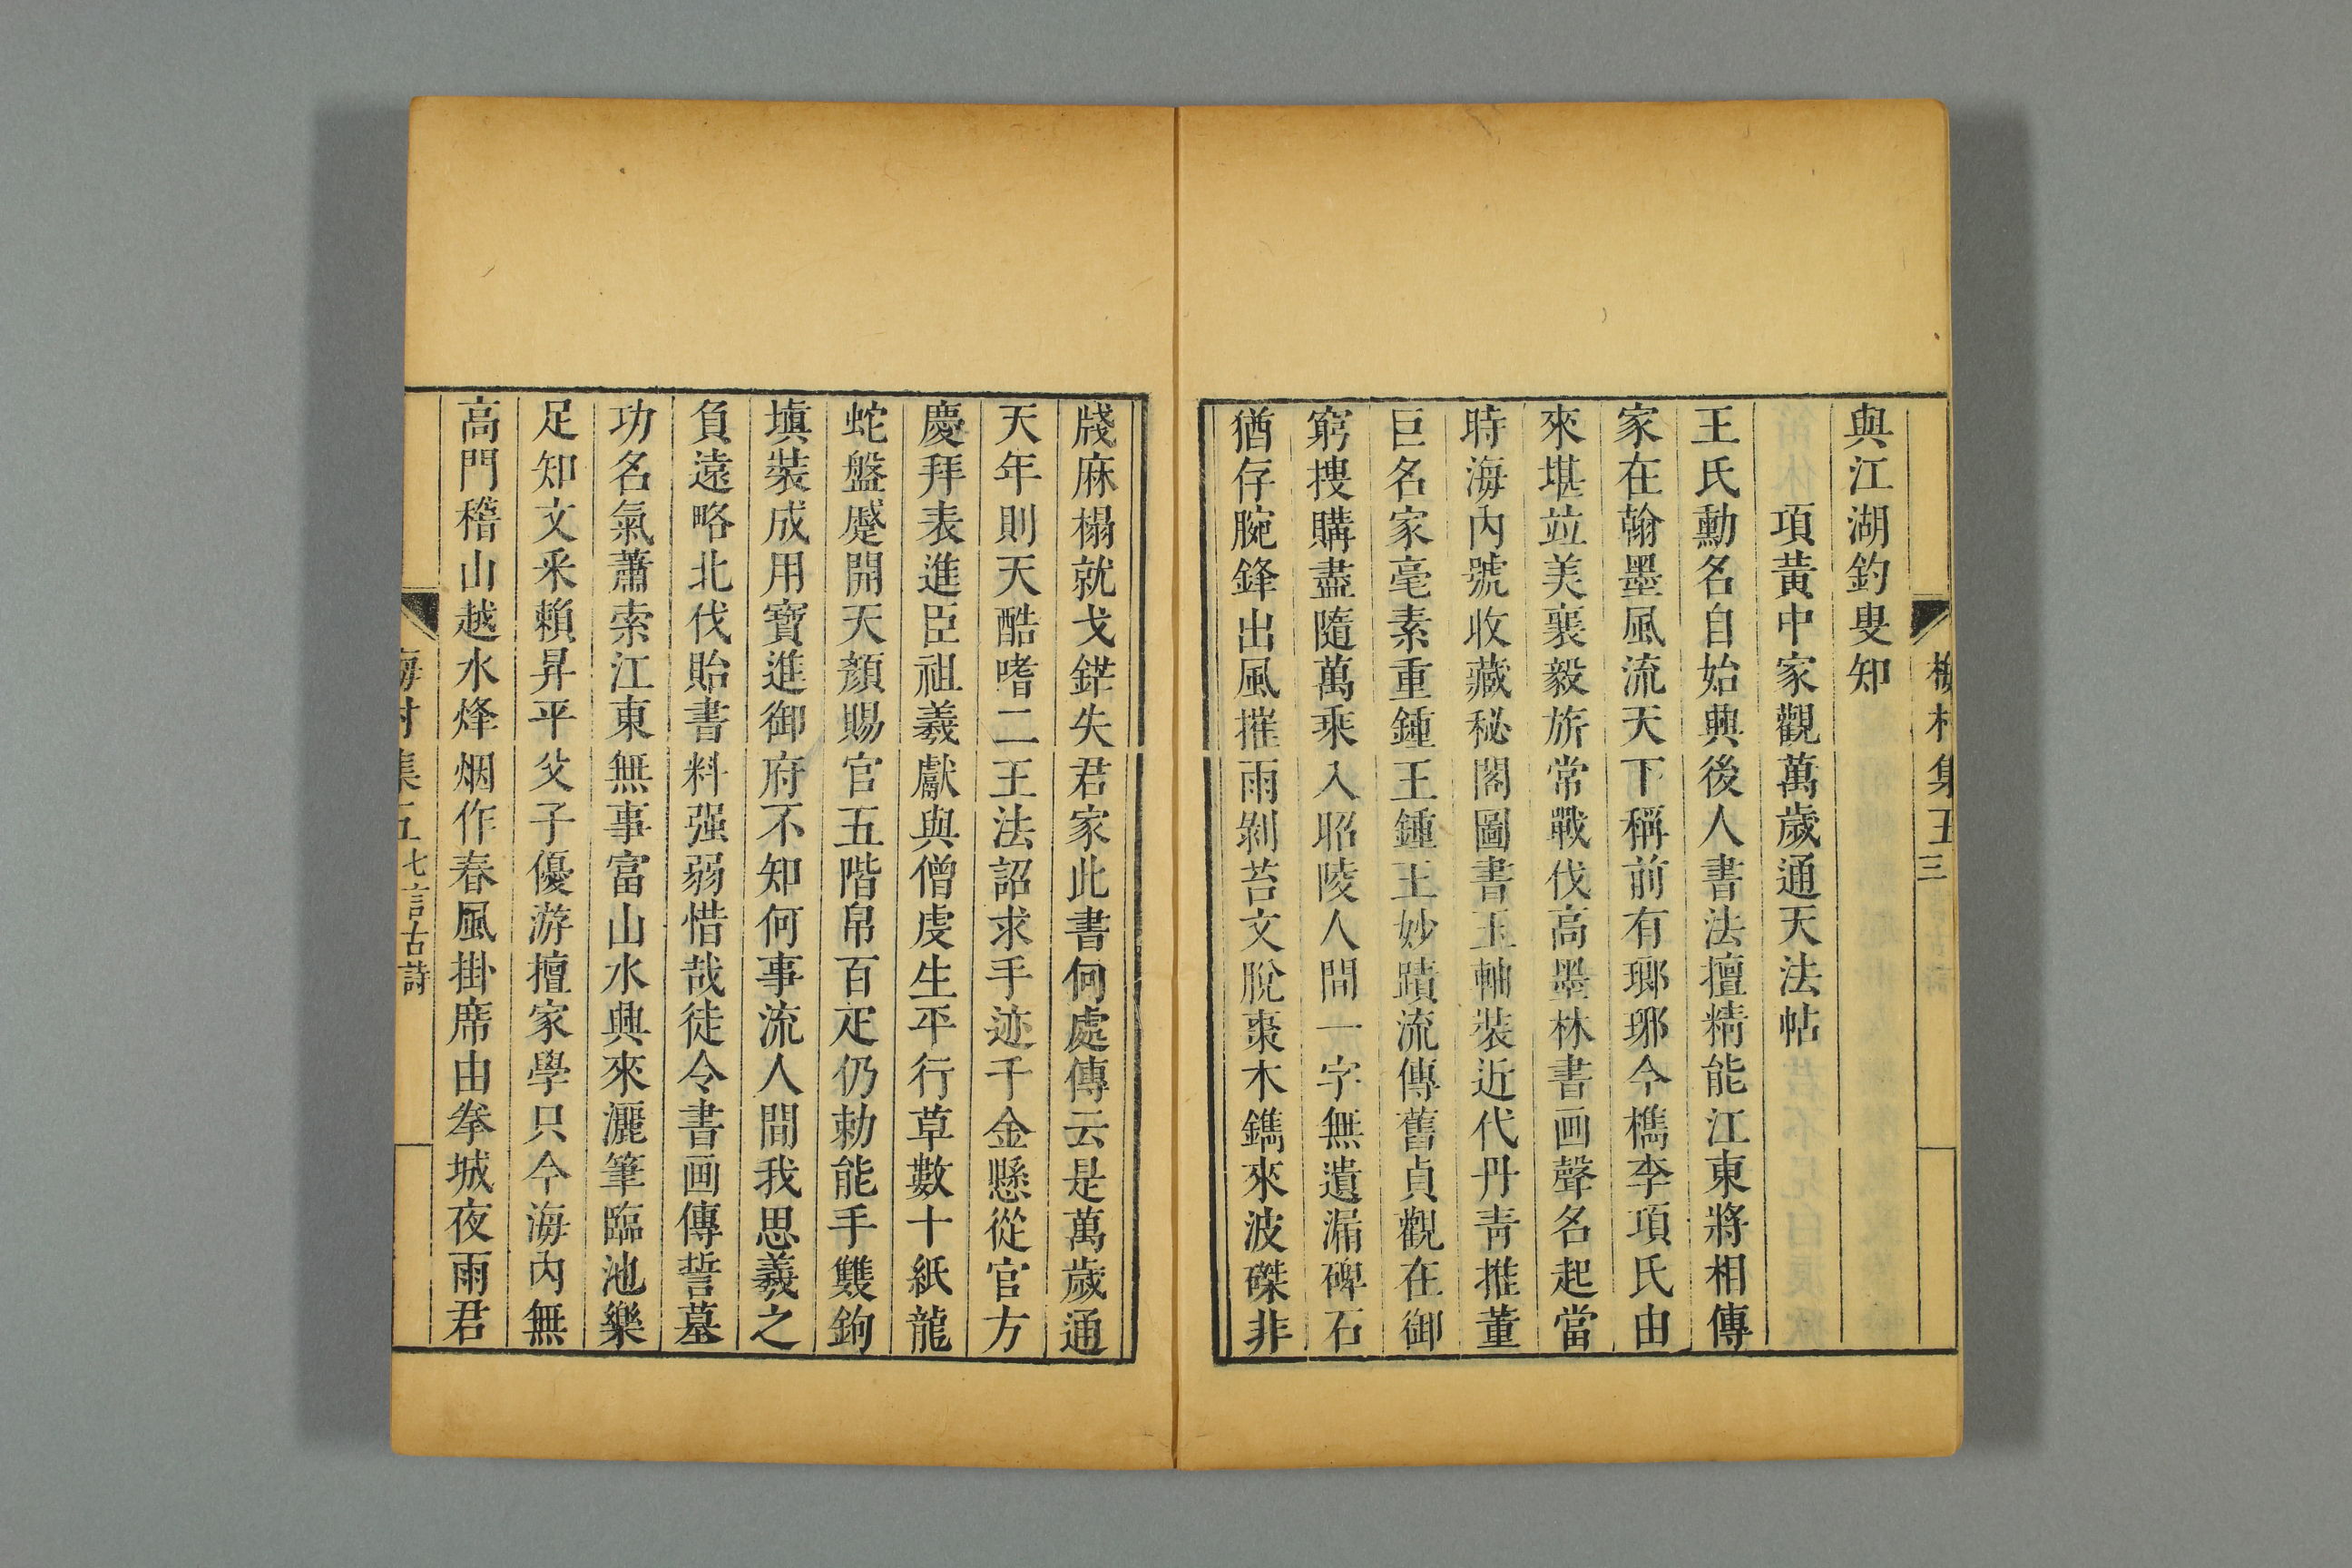 梅村集五
三
與江湖釣叟知
項黃中家觀萬歲通天法帖
王氏勳名自始興後人書法擅精能江東將相傳
家在翰墨風流天下稱前有瑯琊今檇李項氏由
來堪竝美襄毅旂常戰伐高墨林書画聲名起當
時海內號收藏秘閣圖書玉軸裝近代丹青推董
巨名家毫素重鍾王鍾王妙蹟流傳舊貞觀在御
窮搜購盡隨萬乘入昭陵人間一字無遺漏碑石
猶存腕鋒出風摧雨剝苔文脫棗木鐫來波磔非
牋麻榻就戈鋩失君家此書何處傳云是萬歲通
天年則天酷嗜二王法詔求手迹千金懸從官方
慶拜表進臣祖羲獻與僧虔生平行草數十紙龍
蛇盤蹙開天顏賜官五階帛百疋仍勅能手雙鉤
填裝成用寶進御府不知何事流人間我思羲之
負遠略北伐貽書料强弱惜哉徒令書画傳誓墓
功名氣蕭索江東無事富山水興來灑筆臨池樂
足知文采賴昇平父子優游擅家學只今海內無
高門稽山越水烽烟作春風掛席由拳城夜雨君
梅村集五
七言古詩